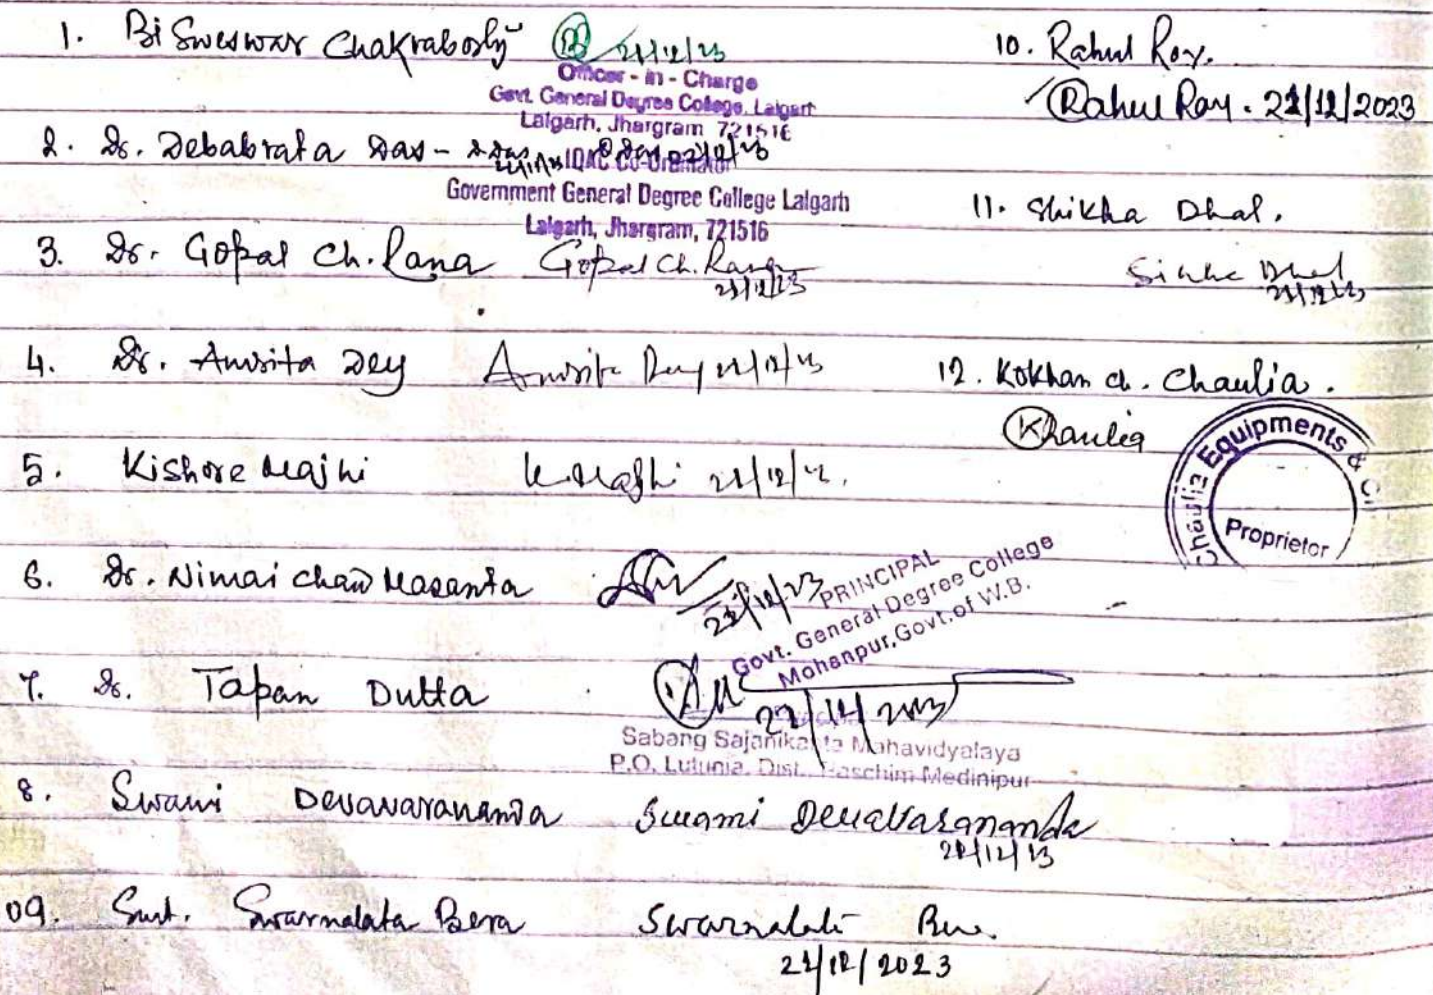 1. Bisweswar Chakraborty
Officer - in - Charge
Govt. General Degree College, Lalgarh
Lalgarh, Jhargram 721516
2. Dr. Debabrata Das -
IQAC Co-Ordinator
Government General Degree College Lalgarh
Lalgarh, Jhargram, 721516
3. Dr. Gopal Ch. Rana Gopal Ch. Rana
4. Dr. Amrita Dey Amrita Dey
5. Kishore Majhi K. Majhi
6. Dr. Nimai Chand Masanta
PRINCIPAL
Govt. General Degree College
Mohanpur, Govt. of W.B.
7. Dr. Tapan Dutta
Sabang Sajanikanta Mahavidyalaya
P.O. Lutunia, Dist. Paschim Medinipur
8. Swami Devavarananda Swami Devavarananda
09. Smt. Swarnalata Bera Swarnalata Bera
10. Rahul Roy.
Rahul Roy.
11. Shikha Dhal.
12. Kokhan Ch. Chaulia.
KChaulia
Chaulia Equipments &
Proprietor